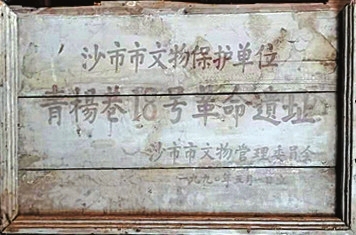 沙市市文物保护单位
青杨巷18号革命遗址
沙市市文物管理委员会
一九九〇年五月